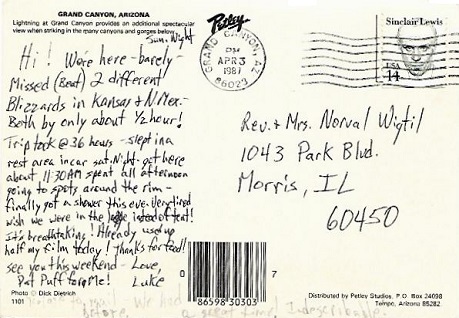 GRAND CANYON, ARIZONA
Lightning at Grand Canyon provides an additional spectacular
view when striking in the many canyons and gorges below.
Sun. Night
Hi! We're here - barely
Missed (Beat) 2 different
Blizzards in Kansas & N Mex. -
Both by only about ½ hour!
Trip took @ 36 hours - slept in a
rest area in car Sat. Night. got here
about 11:30 AM spent all afternoon
going to spots around the rim -
finally got a shower this eve. Very tired
wish we were in the lodge instead of tent!
It's breathtaking! Already used up
half my film today! Thanks for food!
see you this weekend - Love,
Pat Puff for Me! Luke
Photo © Dick Dietrich
1101
We had
before. a great time! Indescribable
Petley
GRAND CANYON, AZ
PM
APR 3
1987
86023
Sinclair Lewis
USA
14
Rev. & Mrs. Norval Wigtil
1043 Park Blvd.
Morris, IL
60450
0 86598 30303 7
Distributed by Petley Studios, P.O. Box 24098
Tempe, Arizona 85282